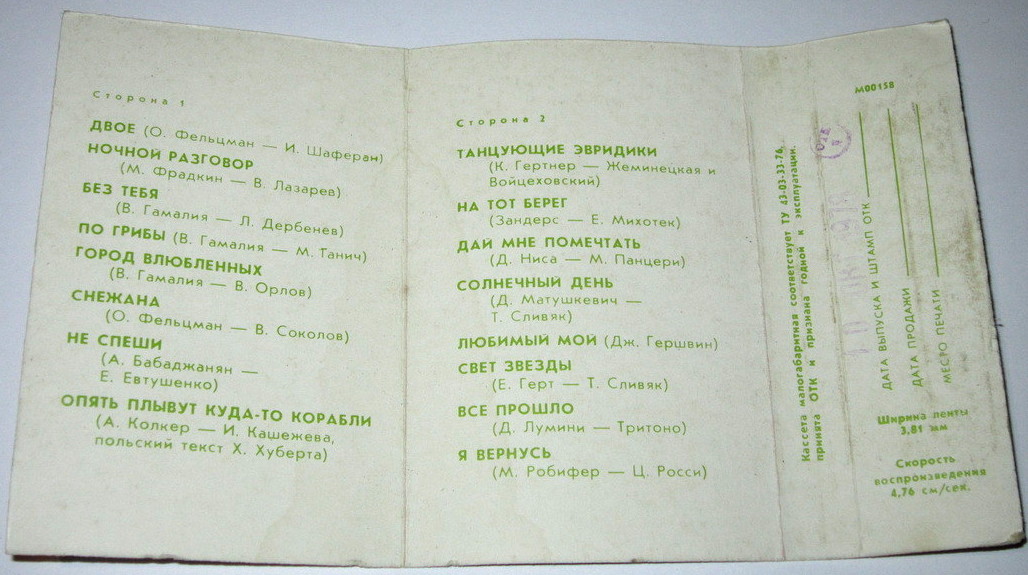 Сторона 1
ДВОЕ (О. Фельцман — И. Шаферан)
НОЧНОЙ РАЗГОВОР
(М. Фрадкин — В. Лазарев)
БЕЗ ТЕБЯ
(В. Гамалия — Л. Дербенев)
ПО ГРИБЫ (В. Гамалия — М. Танич)
ГОРОД ВЛЮБЛЕННЫХ
(В. Гамалия — В. Орлов)
СНЕЖАНА
(О. Фельцман — В. Соколов)
НЕ СПЕШИ
(А. Бабаджанян —
Е. Евтушенко)
ОПЯТЬ ПЛЫВУТ КУДА-ТО КОРАБЛИ
(А. Колкер — И. Кашежева,
польский текст Х. Хуберта)
Сторона 2
ТАНЦУЮЩИЕ ЭВРИДИКИ
(К. Гертнер — Жеминецкая и
Войцеховский)
НА ТОТ БЕРЕГ
(Зандерс — Е. Михотек)
ДАЙ МНЕ ПОМЕЧТАТЬ
(Д. Ниса — М. Панцери)
СОЛНЕЧНЫЙ ДЕНЬ
(Д. Матушкевич —
Т. Сливяк)
ЛЮБИМЫЙ МОЙ (Дж. Гершвин)
СВЕТ ЗВЕЗДЫ
(Е. Герт — Т. Сливяк)
ВСЕ ПРОШЛО
(Д. Лумини — Тритоно)
Я ВЕРНУСЬ
(М. Робифер — Ц. Росси)
Кассета малогабаритная соответствует ТУ 43-03-33-76,
принята ОТК и признана годной к эксплуатации.
М00158
ДАТА ВЫПУСКА И ШТАМП ОТК
ДАТА ПРОДАЖИ
МЕСТО ПЕЧАТИ
Ширина ленты
3,81 мм
Скорость
воспроизведения
4,76 см/сек.